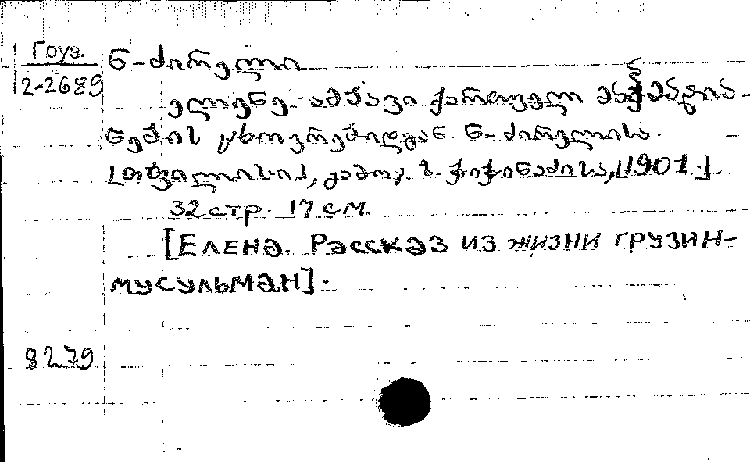 Груз.
2-2689
ნ-ძირელი
ელენე. ამბავი ქართველ მაჰმადია-
ნების ცხოვრებიდგან ნ-ძირელისა.
[თფილისი], გამოც. ზ. ჭიჭინაძისა, [1901.]
32 стр. 17 см.
[Елена. Рассказ из жизни грузин-
мусульман].
8279